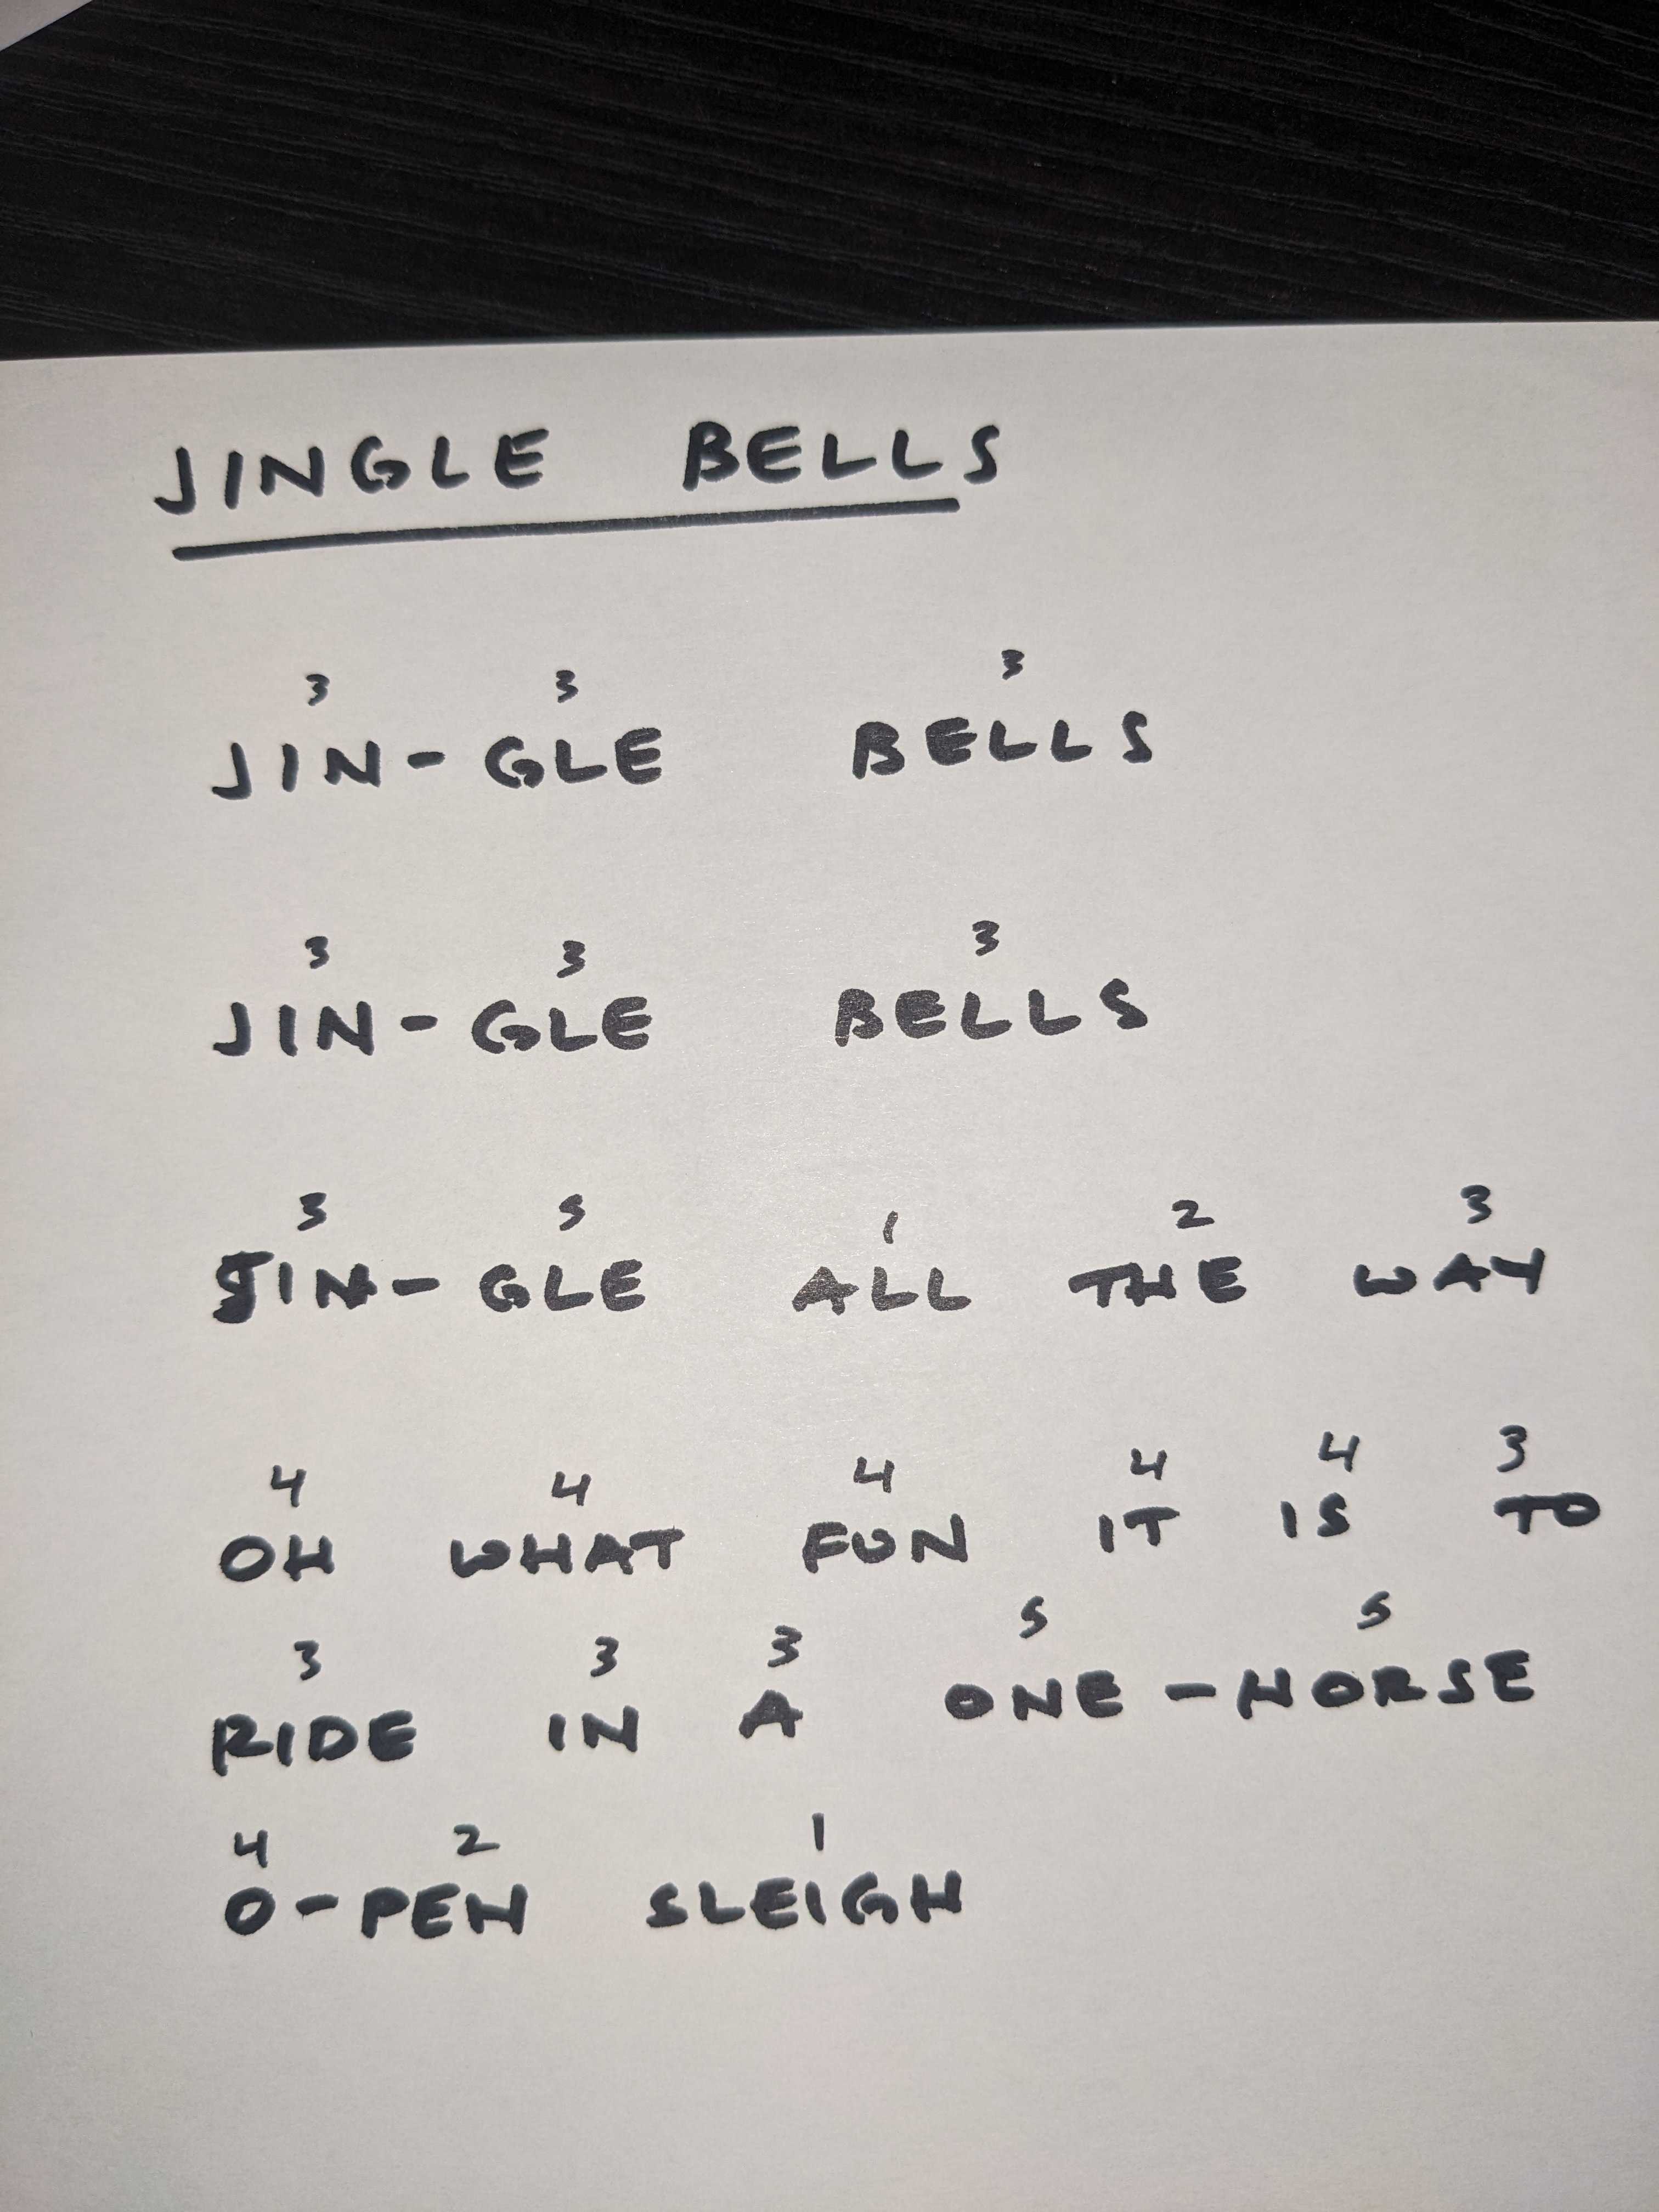 JINGLE BELLS
3 3 3
JIN-GLE BELLS
3 3 3
JIN-GLE BELLS
3 5 1 2 3
JIN-GLE ALL THE WAY
4 4 4 4 4 3
OH WHAT FUN IT IS TO
3 3 3 5 5
RIDE IN A ONE-HORSE
4 2 1
O-PEN SLEIGH